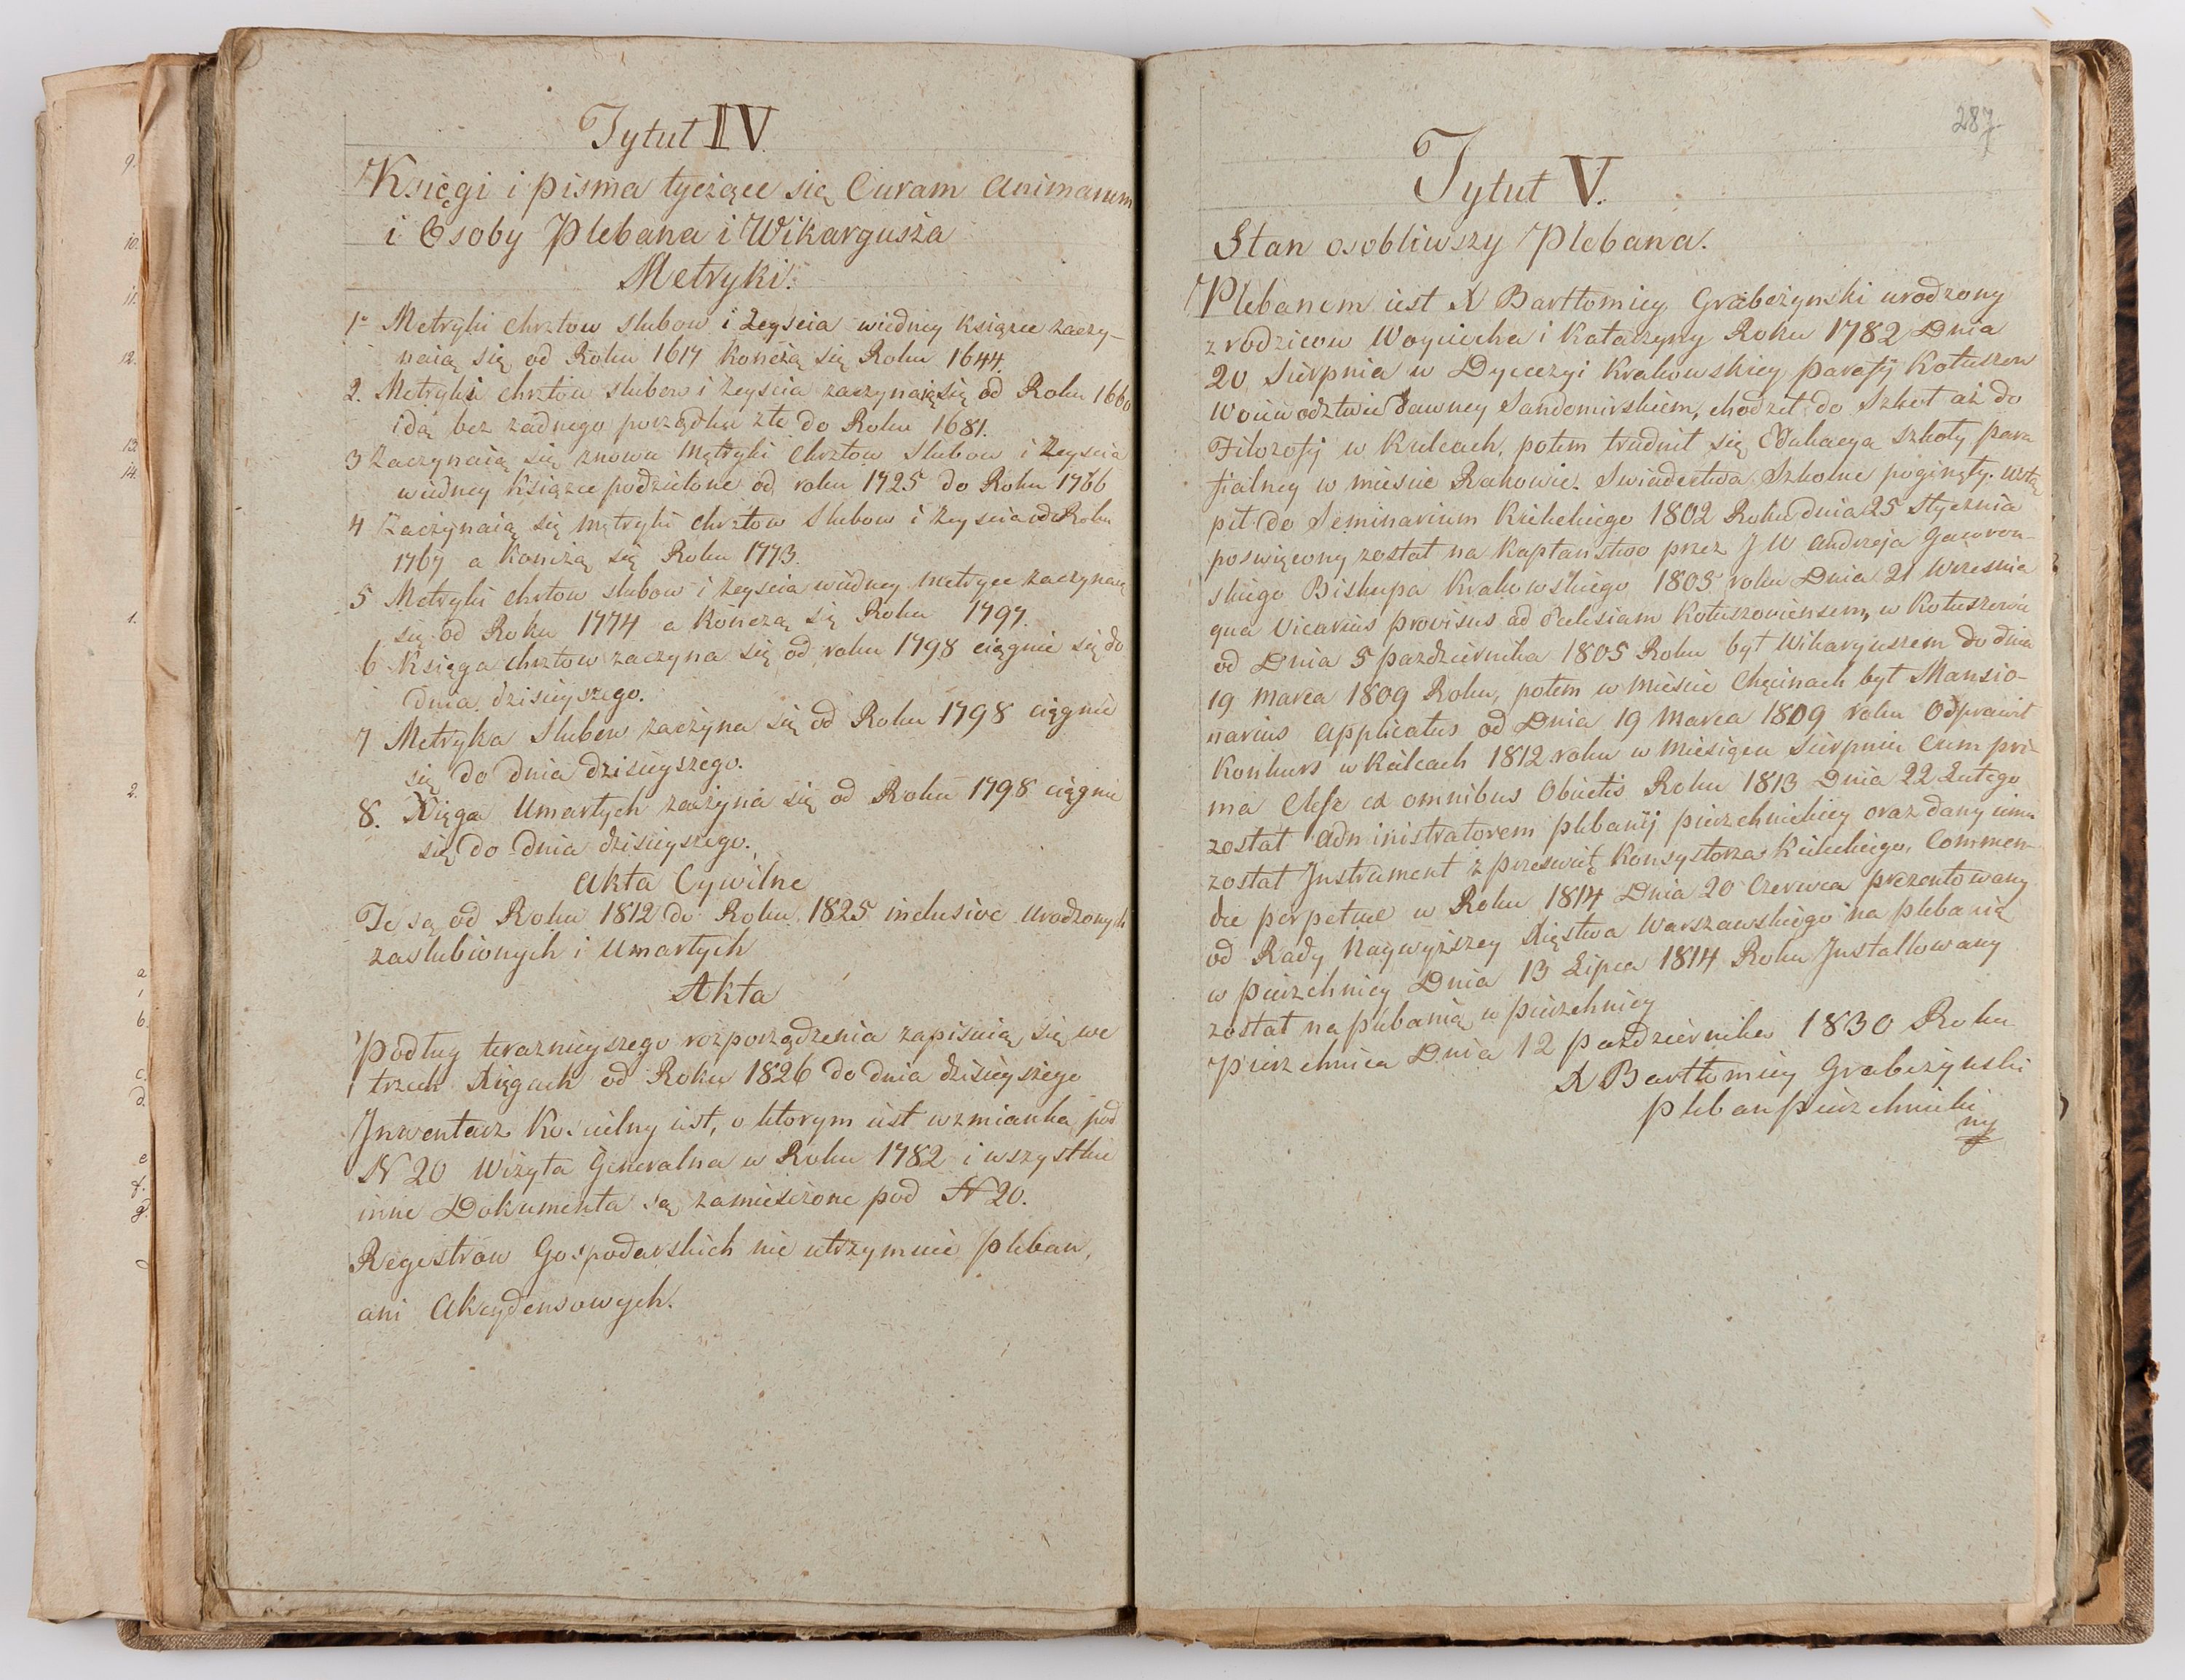 9.
10.
11.
12.
13.
14.
1.
2.
a
b.
c.
d.
e
f.
g.
Tytuł IV.
Księgi i pisma tyczące się Curam Animarum
i Osoby Plebana i Wikaryusza
Metryki.
1º Metryki chrztow slubow i Zeyscia wiedney ksiązce zaczy-
naią się od Roku 1617 kończą się Roku 1644.
2. Metryki chrztow slubow i zeyscia zaczynaią się od Roku 1660
idą bez żadnego porządku złe do Roku 1681.
3 Zaczynaią się znowu Metryki Chrztow Slubow i Zeyscia
wiedney ksiązce podzielone od roku 1725 do Roku 1766
4 Zaczynaią się metryki chrztow Slubow i Zeyscia od Roku
1767 a kończą się Roku 1773.
5 Metryki chrtow slubow i zeyscia wiedney metryce zaczynaią
się od Roku 1774 a kończą się Roku 1797.
6 Księga chrztow zaczyna się od roku 1798 ciągnie się do
dnia dzisieyszego.
7 Metryka Slubow zaczyna się od Roku 1798 ciągnie
się do dnia dzisieyszego.
8. Xięga Umarłych zaczyna się od Roku 1798 ciągnie
się do dnia dzisieyszego.
Akta Cywilne
Te są od Roku 1812 do Roku 1825 inclusive Urodzonych
zaslubionych i Umarłych
Akta
Podług teraznieyszego rozporządzenia zapisuią się we
trzech Xięgach od Roku 1826 do dnia dzisieyszego
Inwentarz Koscielny iest, o ktorym iest wzmianka pod
N 20 Wizyta Generalna w Roku 1782 i wszystkie
inne Dokumenta są zamieszczone pod N 20.
Regestrow Gospodarskich nie utrzymuie Pleban,
ani Akcydensowych.
287
Tytuł V.
Stan osobliwszy Plebana.
Plebanem iest X Bartłomiey Grabczynski urodzony
z rodzicow Woyciecha i Katarzyny Roku 1782 Dnia
20 Sierpnia w Dyecezyi Krakowskiey parafij Kotuszow
Woiewodztwie dawney Sandomirskiem, chodził do Szkoł aż do
Filozofij w Kielcach, potem trudnił się Edukacya szkoły para
fialney w miescie Rakowie. Swiadectwa Szkolne poginęły. Wstą
pił do Seminarium Kieleckiego 1802 Roku dnia 25 Stycznia
poswięcony został na kapłanstwo przez J W Andrzeja Gawron-
skiego Biskupa Krakowskiego 1805 roku Dnia 21 Wrzesnia
qua Vicarius provisus ad Eclesiam Kotuszoviensem, w Kotuszowie
od Dnia 5 pazdziernika 1805 Roku był Wikaryuszem do dnia
19 marca 1809 Roku, potem w miescie Chęcinach był Mansio-
narius Applicatus od Dnia 19 Marca 1809 roku Odprawił
Konkurs w Kielcach 1812 roku w miesiącu Sierpniu Cum pri-
ma Clase ex omnibus Obiectis Roku 1813 Dnia 22 Lutego
został administratorem plebanij pierzchnickiey oraz dany iemu
został Instrument z przeswięt Konsystorza Kieleckiego, Commen-
dae perpetuae w Roku 1814 Dnia 20 Czerwca prezentowany
od Rady Naywyższey Xięstwa Warszawskiego na plebanią
w pierzchnicy Dnia 13 Lipca 1814 Roku Installowany
został na plebanią w pierzchnicy
Pierzchnica Dnia 12 pazdziernika 1830 Roku
X Bartłomiey Grabczynski
pleban pierzchnicki